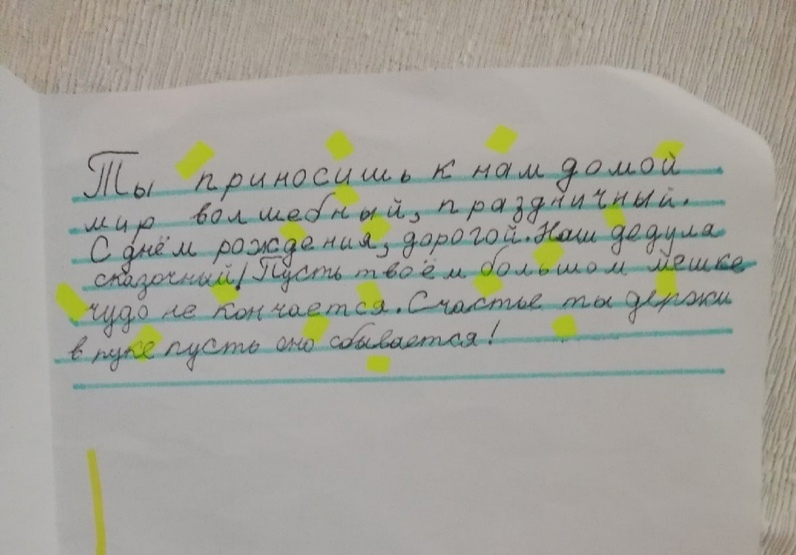 Ты приносишь к нам домой
мир волшебный, праздничный.
С днём рождения, дорогой. Наш дедула
сказочный! Пусть твоём большом мешке
чудо не кончается. Счастье ты держи
в руке пусть оно сбывается!